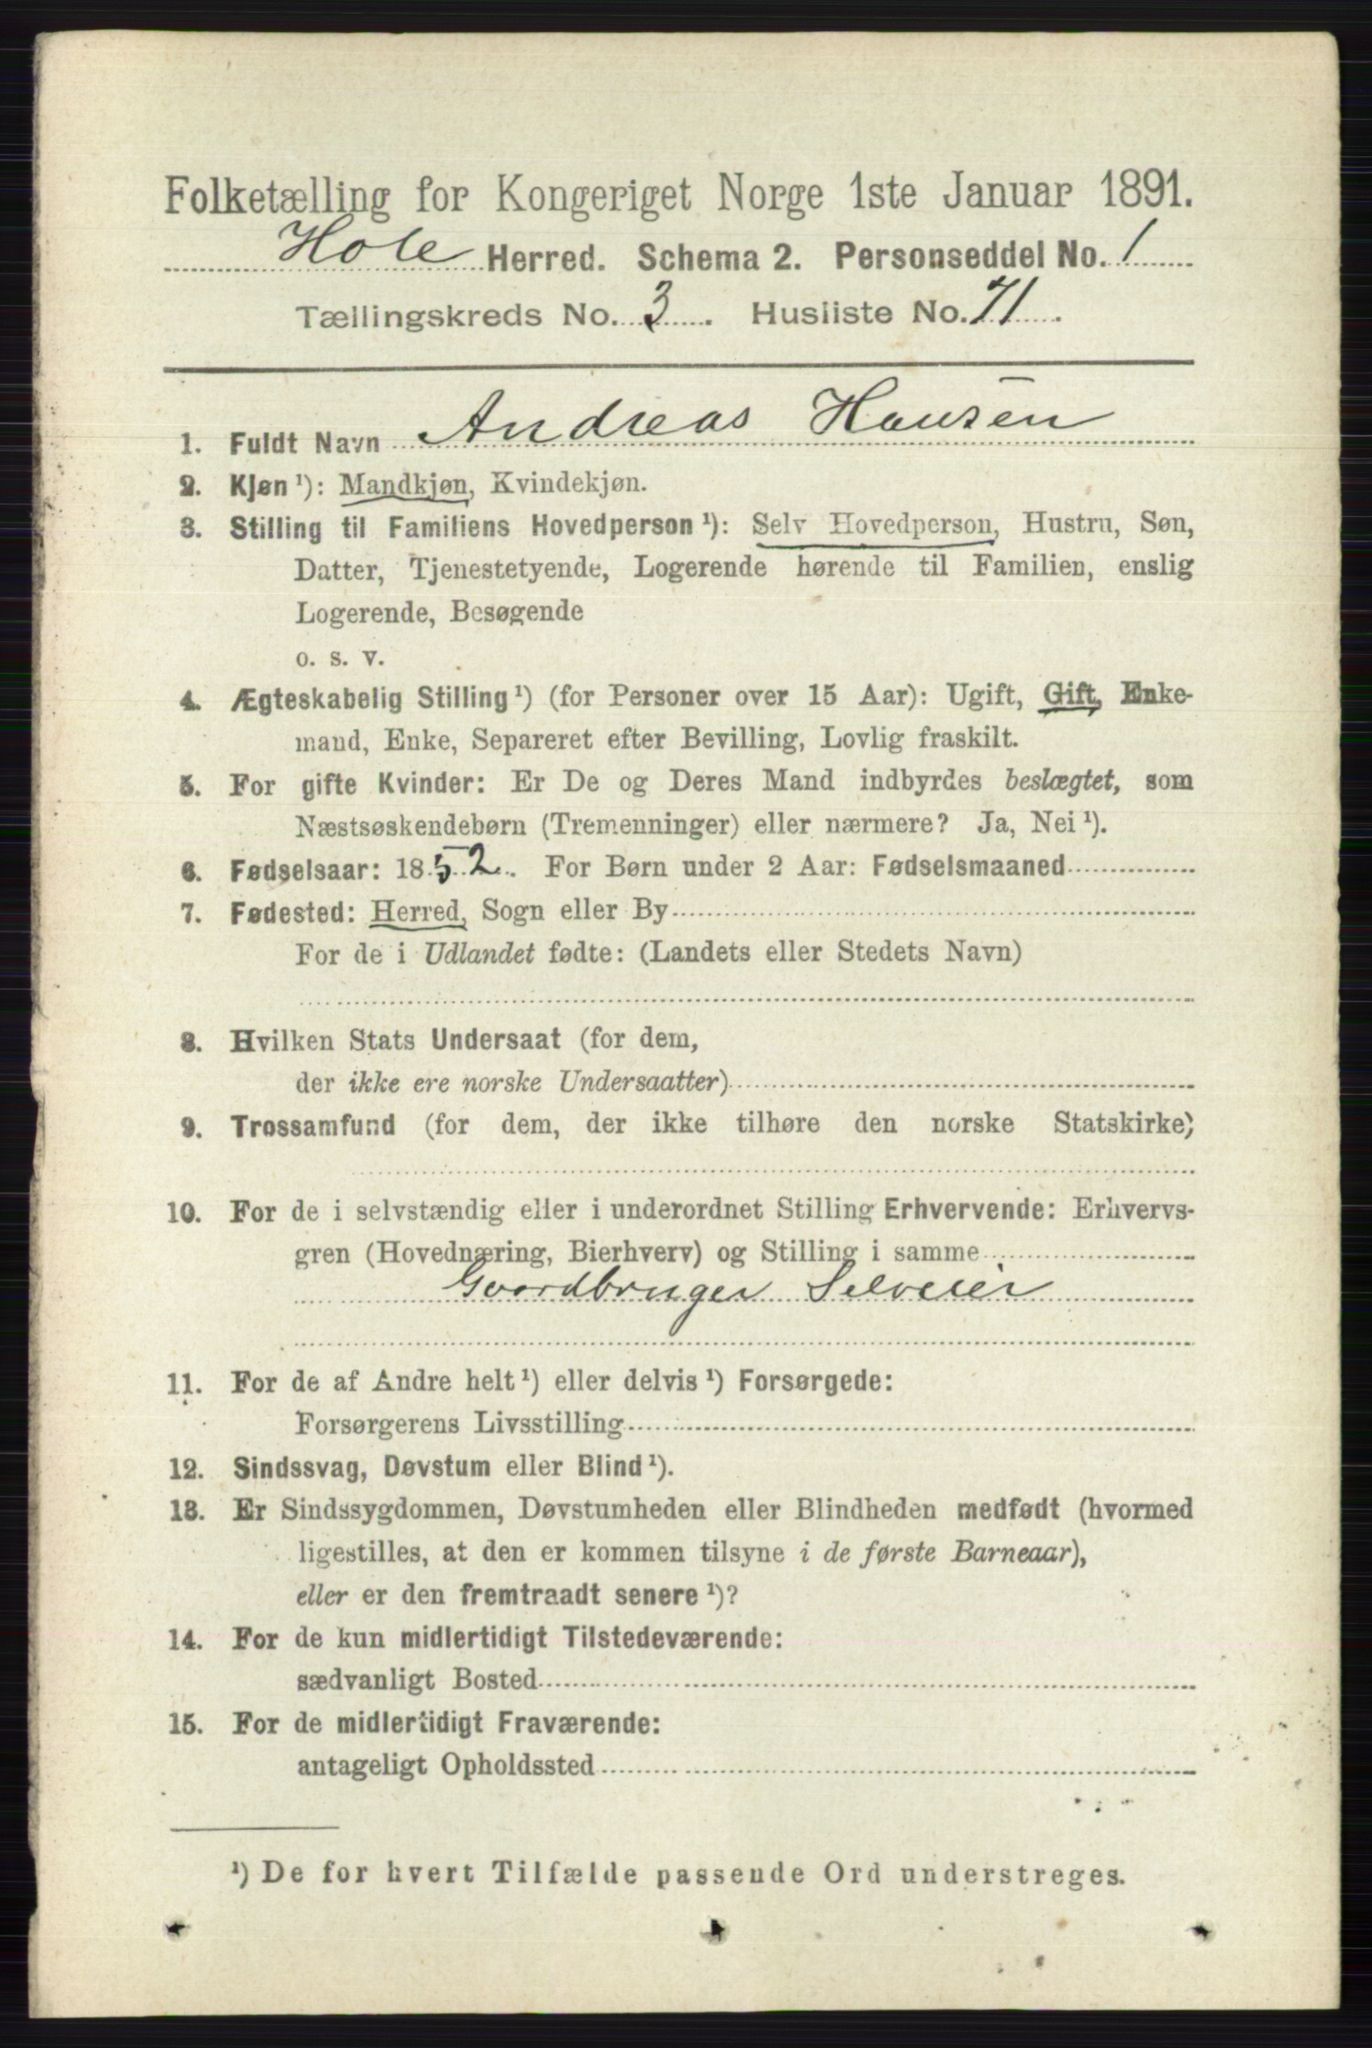 Folketælling for Kongeriget Norge 1ste Januar 1891.
Hole Herred. Schema 2. Personseddel No. 1
Tællingskreds No. 3. Husliste No. 71.
1. Fuldt Navn Andreas Hansen
2. Kjøn ¹): Mandkjøn, Kvindekjøn.
3. Stilling til Familiens Hovedperson ¹): Selv Hovedperson, Hustru, Søn,
Datter, Tjenestetyende, Logerende hørende til Familien, enslig
Logerende, Besøgende
o. s. v.
4. Ægteskabelig Stilling ¹) (for Personer over 15 Aar): Ugift, Gift, Enke-
mand, Enke, Separeret efter Bevilling, Lovlig fraskilt.
5. For gifte Kvinder: Er De og Deres Mand indbyrdes beslægtet, som
Næstsøskendebørn (Tremenninger) eller nærmere? Ja, Nei ¹).
6. Fødselsaar: 1852. For Børn under 2 Aar: Fødselsmaaned
7. Fødested: Herred, Sogn eller By
For de i Udlandet fødte: (Landets eller Stedets Navn)
8. Hvilken Stats Undersaat (for dem,
der ikke ere norske Undersaatter)
9. Trossamfund (for dem, der ikke tilhøre den norske Statskirke)
10. For de i selvstændig eller i underordnet Stilling Erhvervende: Erhvervs-
gren (Hovednæring, Bierhverv) og Stilling i samme
Gaardbruger Selveier
11. For de af Andre helt ¹) eller delvis ¹) Forsørgede:
Forsørgerens Livsstilling
12. Sindssvag, Døvstum eller Blind ¹).
13. Er Sindssygdommen, Døvstumheden eller Blindheden medfødt (hvormed
ligestilles, at den er kommen tilsyne i de første Barneaar),
eller er den fremtraadt senere ¹)?
14. For de kun midlertidigt Tilstedeværende:
sædvanligt Bosted
15. For de midlertidigt Fraværende:
antageligt Opholdssted
¹) De for hvert Tilfælde passende Ord understreges.